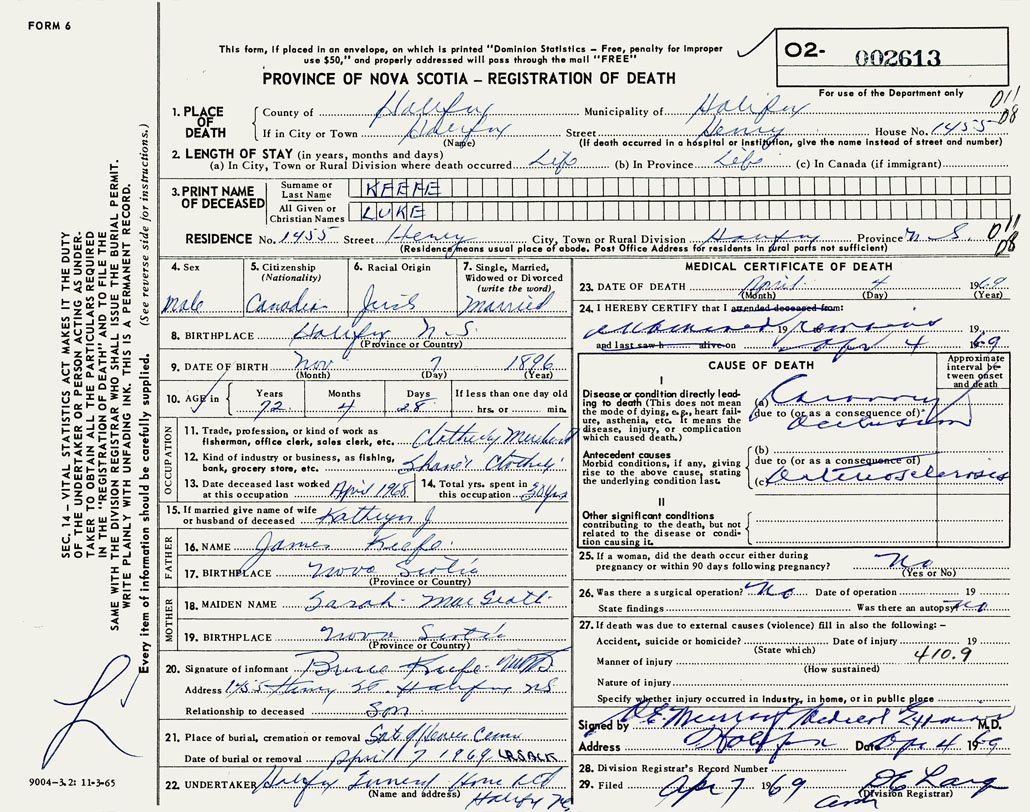 FORM 6
This form, if placed in an envelope, on which is printed "Dominion Statistics – Free, penalty for improper
use $50," and properly addressed will pass through the mail "FREE"
PROVINCE OF NOVA SCOTIA – REGISTRATION OF DEATH
O2- 002613
For use of the Department only
011
08
1. PLACE OF DEATH
County of Halifax Municipality of Halifax
If in City or Town Halifax Street Henry House No. 1455
(Name) (If death occurred in a hospital or institution, give the name instead of street and number)
2. LENGTH OF STAY (in years, months and days)
(a) In City, Town or Rural Division where death occurred Life (b) In Province Life (c) In Canada (if immigrant)
3. PRINT NAME OF DECEASED
Surname or Last Name KEEFE
All Given or Christian Names LUKE
RESIDENCE No. 1455 Street Henry City, Town or Rural Division Halifax Province N.S. 011
08
(Residence means usual place of abode. Post Office Address for residents in rural parts not sufficient)
4. Sex
Male
5. Citizenship (Nationality)
Canadian
6. Racial Origin
Irish
7. Single, Married, Widowed or Divorced (write the word)
Married
8. BIRTHPLACE Halifax N.S.
(Province or Country)
9. DATE OF BIRTH Nov 7 1896
(Month) (Day) (Year)
10. AGE in Years Months Days If less than one day old
72 4 28 hrs. or min.
OCCUPATION
11. Trade, profession, or kind of work as
fisherman, office clerk, sales clerk, etc. Clothing Merchant
12. Kind of industry or business, as fishing,
bank, grocery store, etc. Shane's Clothing
13. Date deceased last worked
at this occupation April 1968
14. Total yrs. spent in
this occupation 50 yrs
15. If married give name of wife
or husband of deceased Kathryn J.
FATHER
16. NAME James Keefe
17. BIRTHPLACE Nova Scotia
(Province or Country)
MOTHER
18. MAIDEN NAME Sarah MacGrath
19. BIRTHPLACE Nova Scotia
(Province or Country)
20. Signature of informant Bruce Keefe
Address 1455 Henry St. Halifax NS
Relationship to deceased Son
21. Place of burial, cremation or removal Gate of Heaven Cem
Date of burial or removal April 7 1969
22. UNDERTAKER Halifax Funeral Home Ltd
(Name and address) Halifax NS
MEDICAL CERTIFICATE OF DEATH
23. DATE OF DEATH April 4 1969
(Month) (Day) (Year)
24. I HEREBY CERTIFY that I attended deceased from:
examined 19 remains 19
and last saw h alive on Apr 4 1969
CAUSE OF DEATH
Approximate interval between onset and death
I
Disease or condition directly leading to death (This does not mean the mode of dying, e.g., heart failure, asthenia, etc. It means the disease, injury, or complication which caused death.)
(a) Coronary
due to (or as a consequence of)
occlusion
Antecedent causes
Morbid conditions, if any, giving rise to the above cause, stating the underlying condition last.
(b)
due to (or as a consequence of)
(c) Arteriosclerosis
II
Other significant conditions
contributing to the death, but not related to the disease or condition causing it.
25. If a woman, did the death occur either during
pregnancy or within 90 days following pregnancy? No
(Yes or No)
26. Was there a surgical operation? No Date of operation 19
State findings Was there an autopsy No
27. If death was due to external causes (violence) fill in also the following: –
Accident, suicide or homicide? Date of injury 19
(State which) 410.9
Manner of injury
(How sustained)
Nature of injury
Specify whether injury occurred in industry, in home, or in public place
Signed by Murray Medical Examiner M.D.
Address Halifax Date Apr 4 1969
28. Division Registrar's Record Number
29. Filed Apr 7 1969
(Division Registrar)
SEC. 14 – VITAL STATISTICS ACT MAKES IT THE DUTY
OF THE UNDERTAKER OR PERSON ACTING AS UNDER-
TAKER TO OBTAIN ALL THE PARTICULARS REQUIRED
IN THE "REGISTRATION OF DEATH" AND TO FILE THE
SAME WITH THE DIVISION REGISTRAR WHO SHALL ISSUE THE BURIAL PERMIT.
WRITE PLAINLY WITH UNFADING INK. THIS IS A PERMANENT RECORD.
Every item of information should be carefully supplied. (See reverse side for instructions.)
9004-3.2: 11-3-65